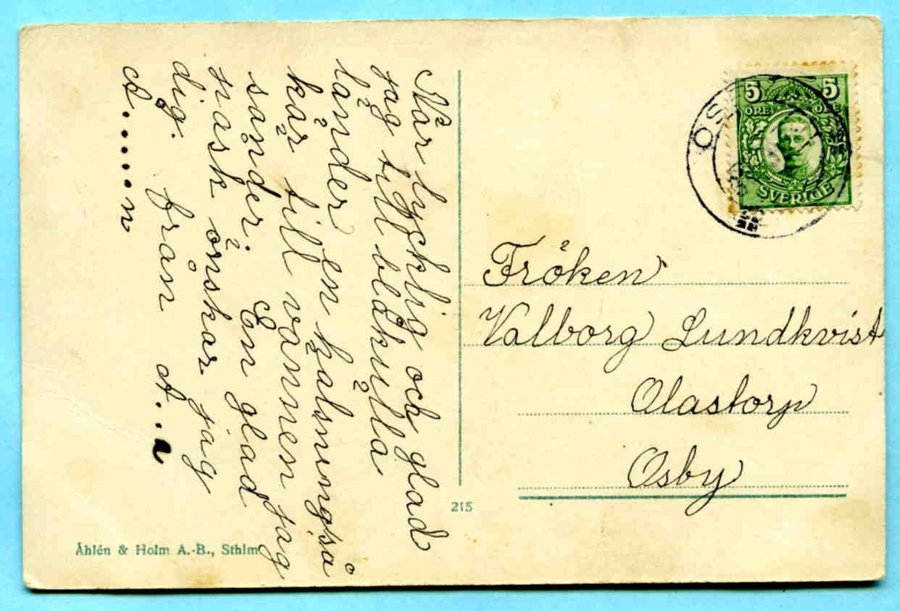 När lycklig och glad
jag till blåkulla
länder en hälsning så
kär till vännen jag
sänder. En glad
påsk önskar jag
dig. från A..a
A......n
5 5
ÖRE ÖRE
SVERIGE
Fröken
Valborg Lundkvist
Olastorp
Osby
215
Åhlén & Holm A.-B., Sthlm